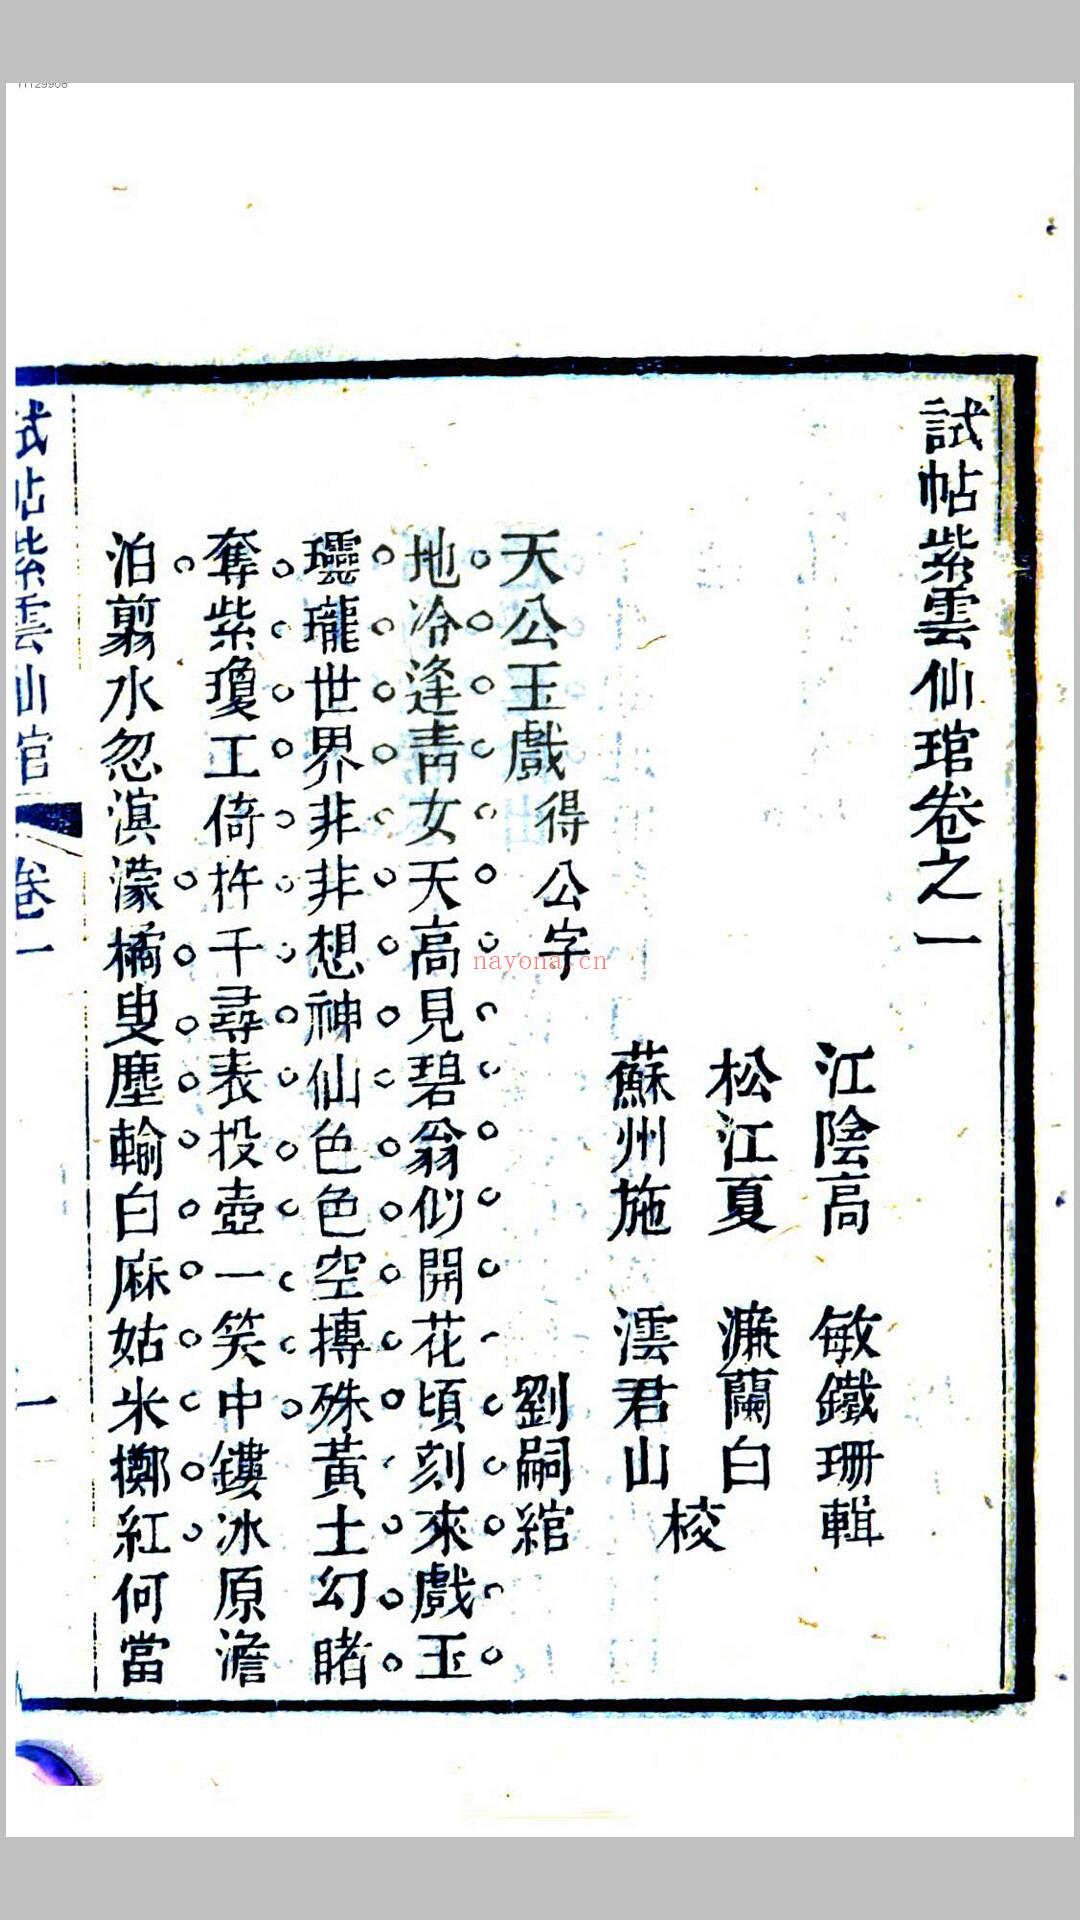 試帖紫雲仙琯卷之一
江陰高 敏鐵珊輯
松江夏 濂蘭白
蘇州施 澐君山
校
天公玉戲得公字
劉嗣綰
地冷逢靑女天高見碧翁似開花頃刻來戲玉
瓏世界非非想神仙色色空摶殊黃土幻睹
奪紫瓊工倚杵千尋表投壺一笑中鏤冰原澹
泊翦水忽溟濛橘叟塵輸白麻姑米擲紅何當
試帖紫雲仙琯
卷一
一
nayona.cn